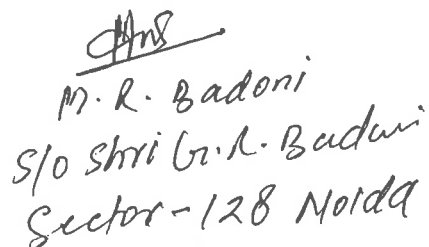 M. R. Badoni
S/o Shri G. R. Badoni
Sector-128 Noida